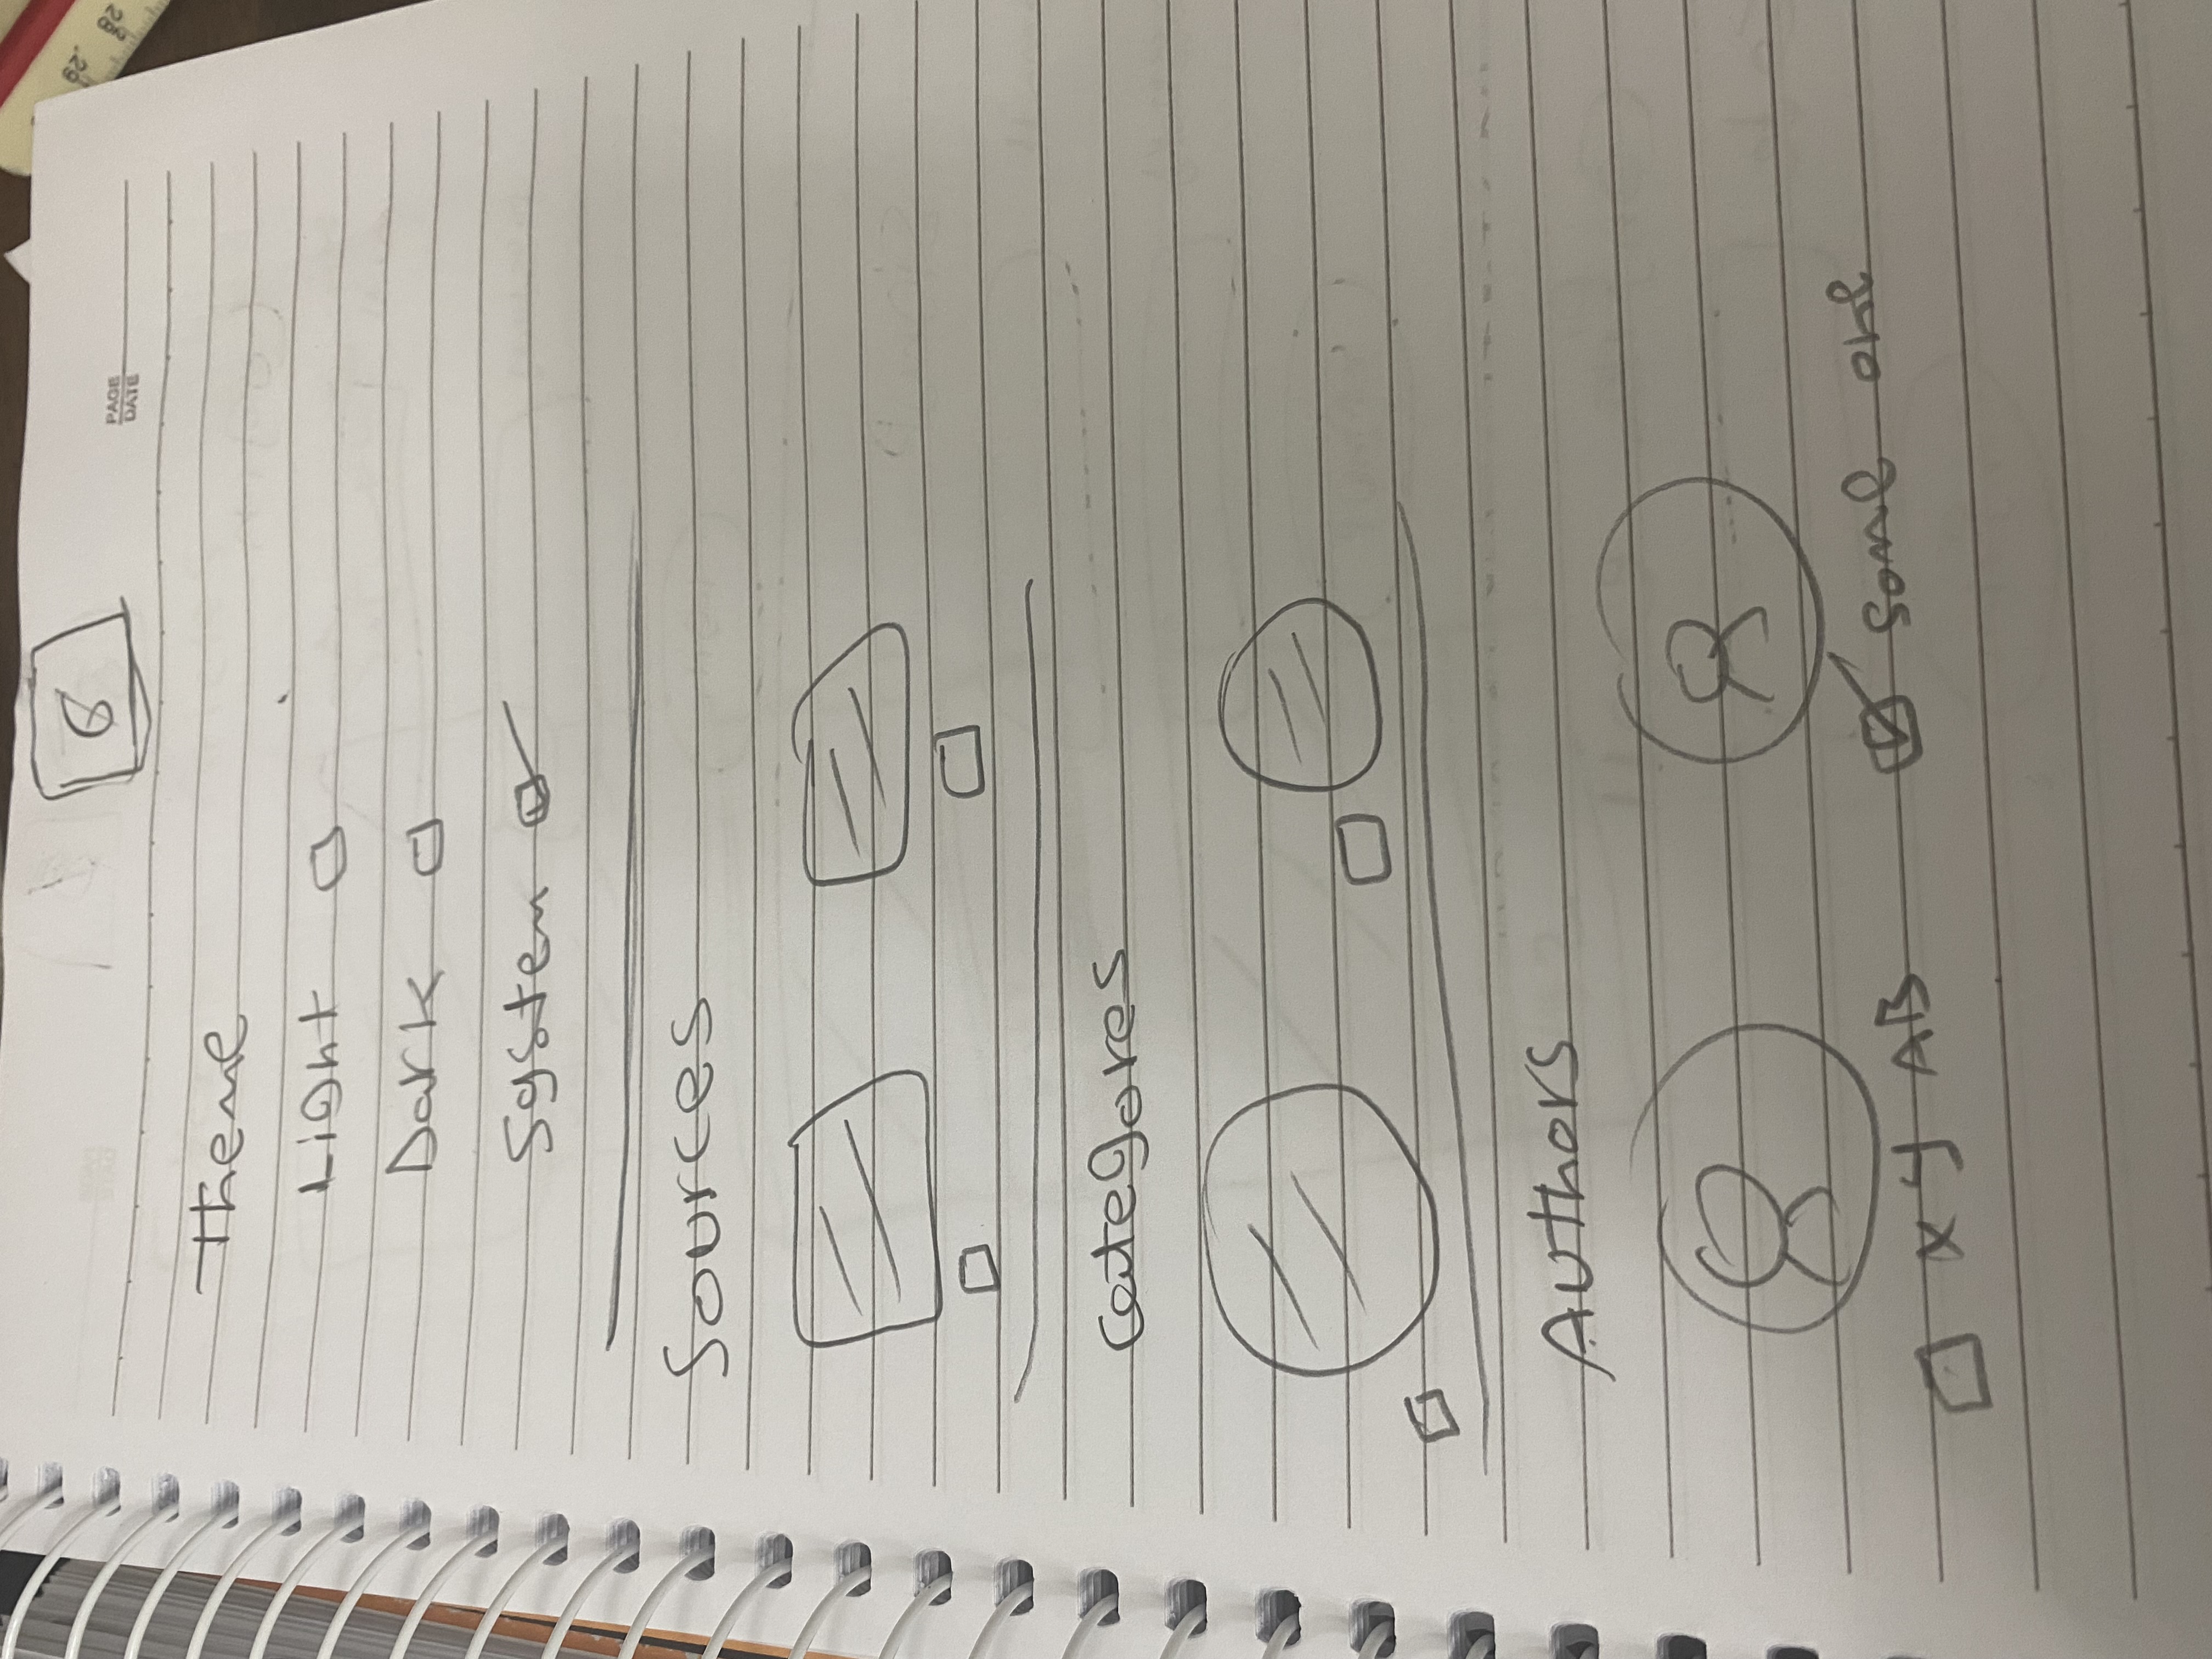 6
PAGE
DATE
Theme
Light
Dark
System
Sources
Categores
Authors
some one
x y AB
29
28